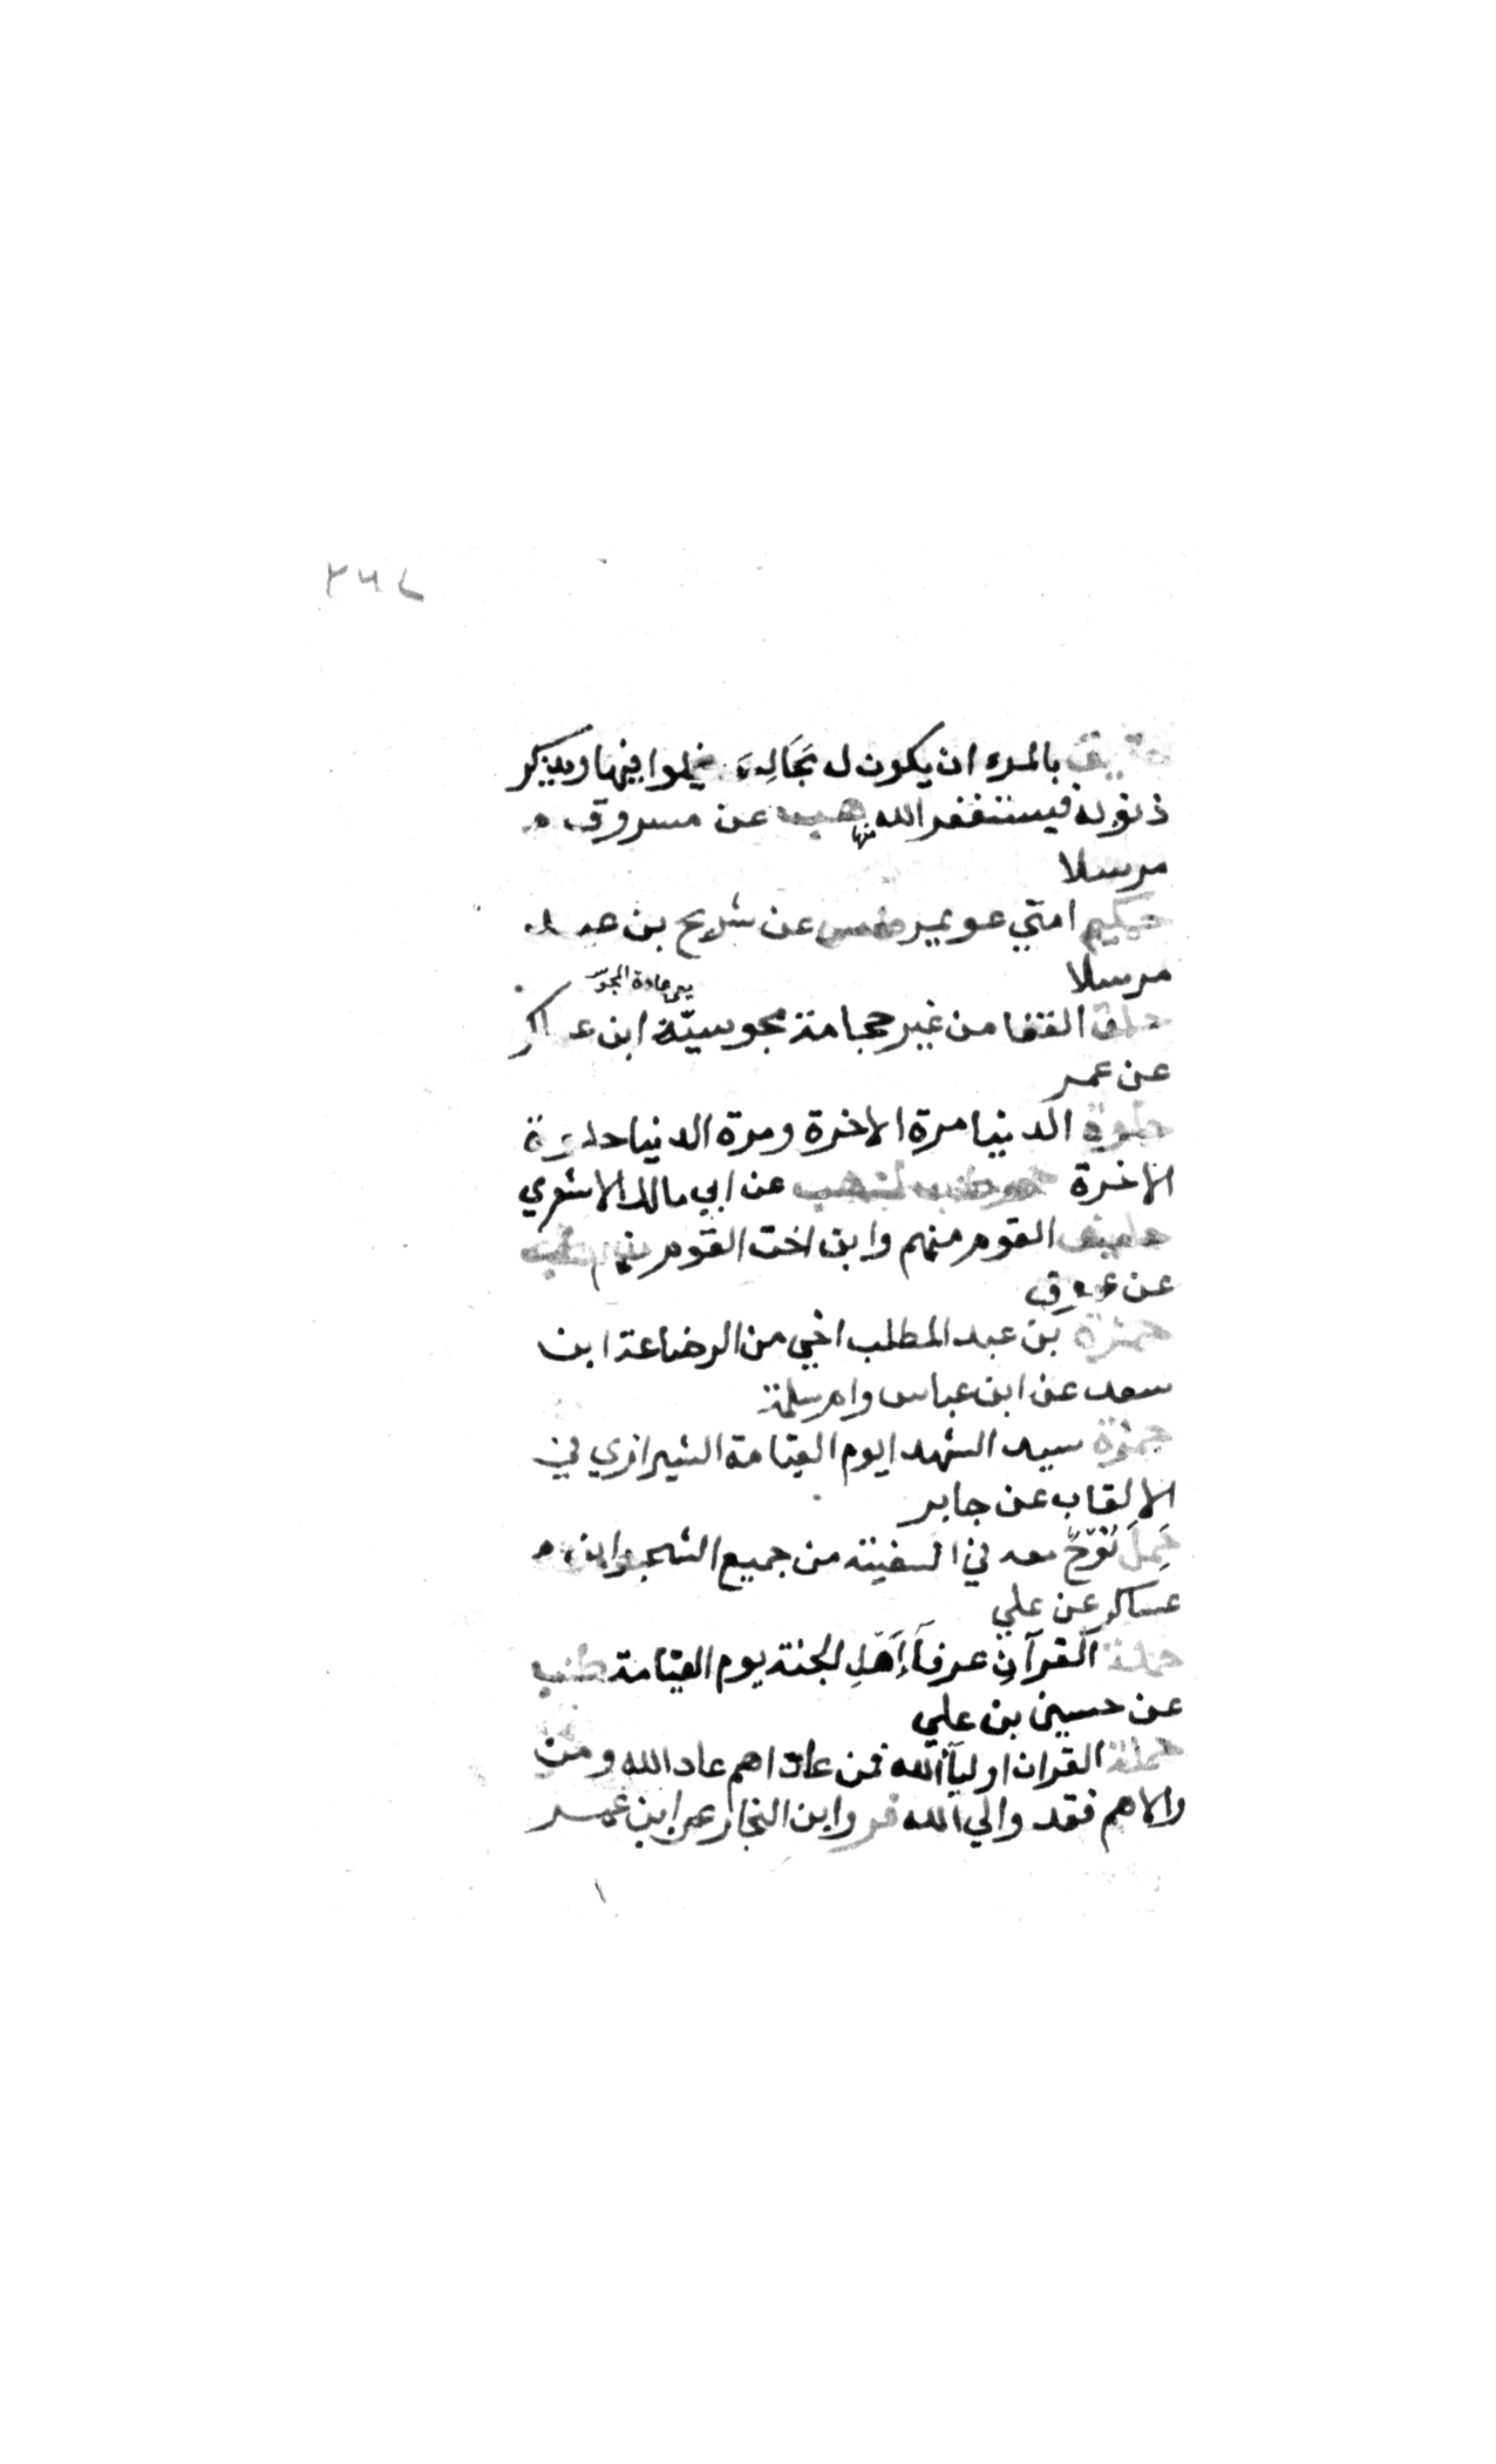 ٢٦٧
حقيق بالمرء ان يكون له مجالس يخلوا فيها ويذكر
ذنوبه فيستغفر الله منها هب عن مسروق
مرسلا
حكيم امتي عويمر طس عن شريح بن عبيد
مرسلا
يعني عادة المجوس
حلق القفا من غير حجامة مجوسيّة ابن عساكر
عن عمر
حلوة الدنيا مرة الاخرة ومرة الدنيا حلوة
الاخرة حم طب ك هب عن ابي مالك الاشعري
حليف القوم منهم وابن اخت القوم منهم طب
عن عمرو
حمزة بن عبد المطلب اخي من الرضاعة ابن
سعد عن ابن عباس وام سلمة
حمزة سيد الشهدا يوم القيامة الشيرازي في
الالقاب عن جابر
حَمَلَ نُوْحٌ معه في السفينة من جميع الشجر ابن
عساكر عن علي
حملة القرآنِ عرفآءُ أَهْلِ الجنة يوم القيامة طب
عن حسين بن علي
حملة القران اوليآء الله فمن عاداهم عاد الله ومن
والاهم فقد والي الله فر وابن النجار عن ابن عمر